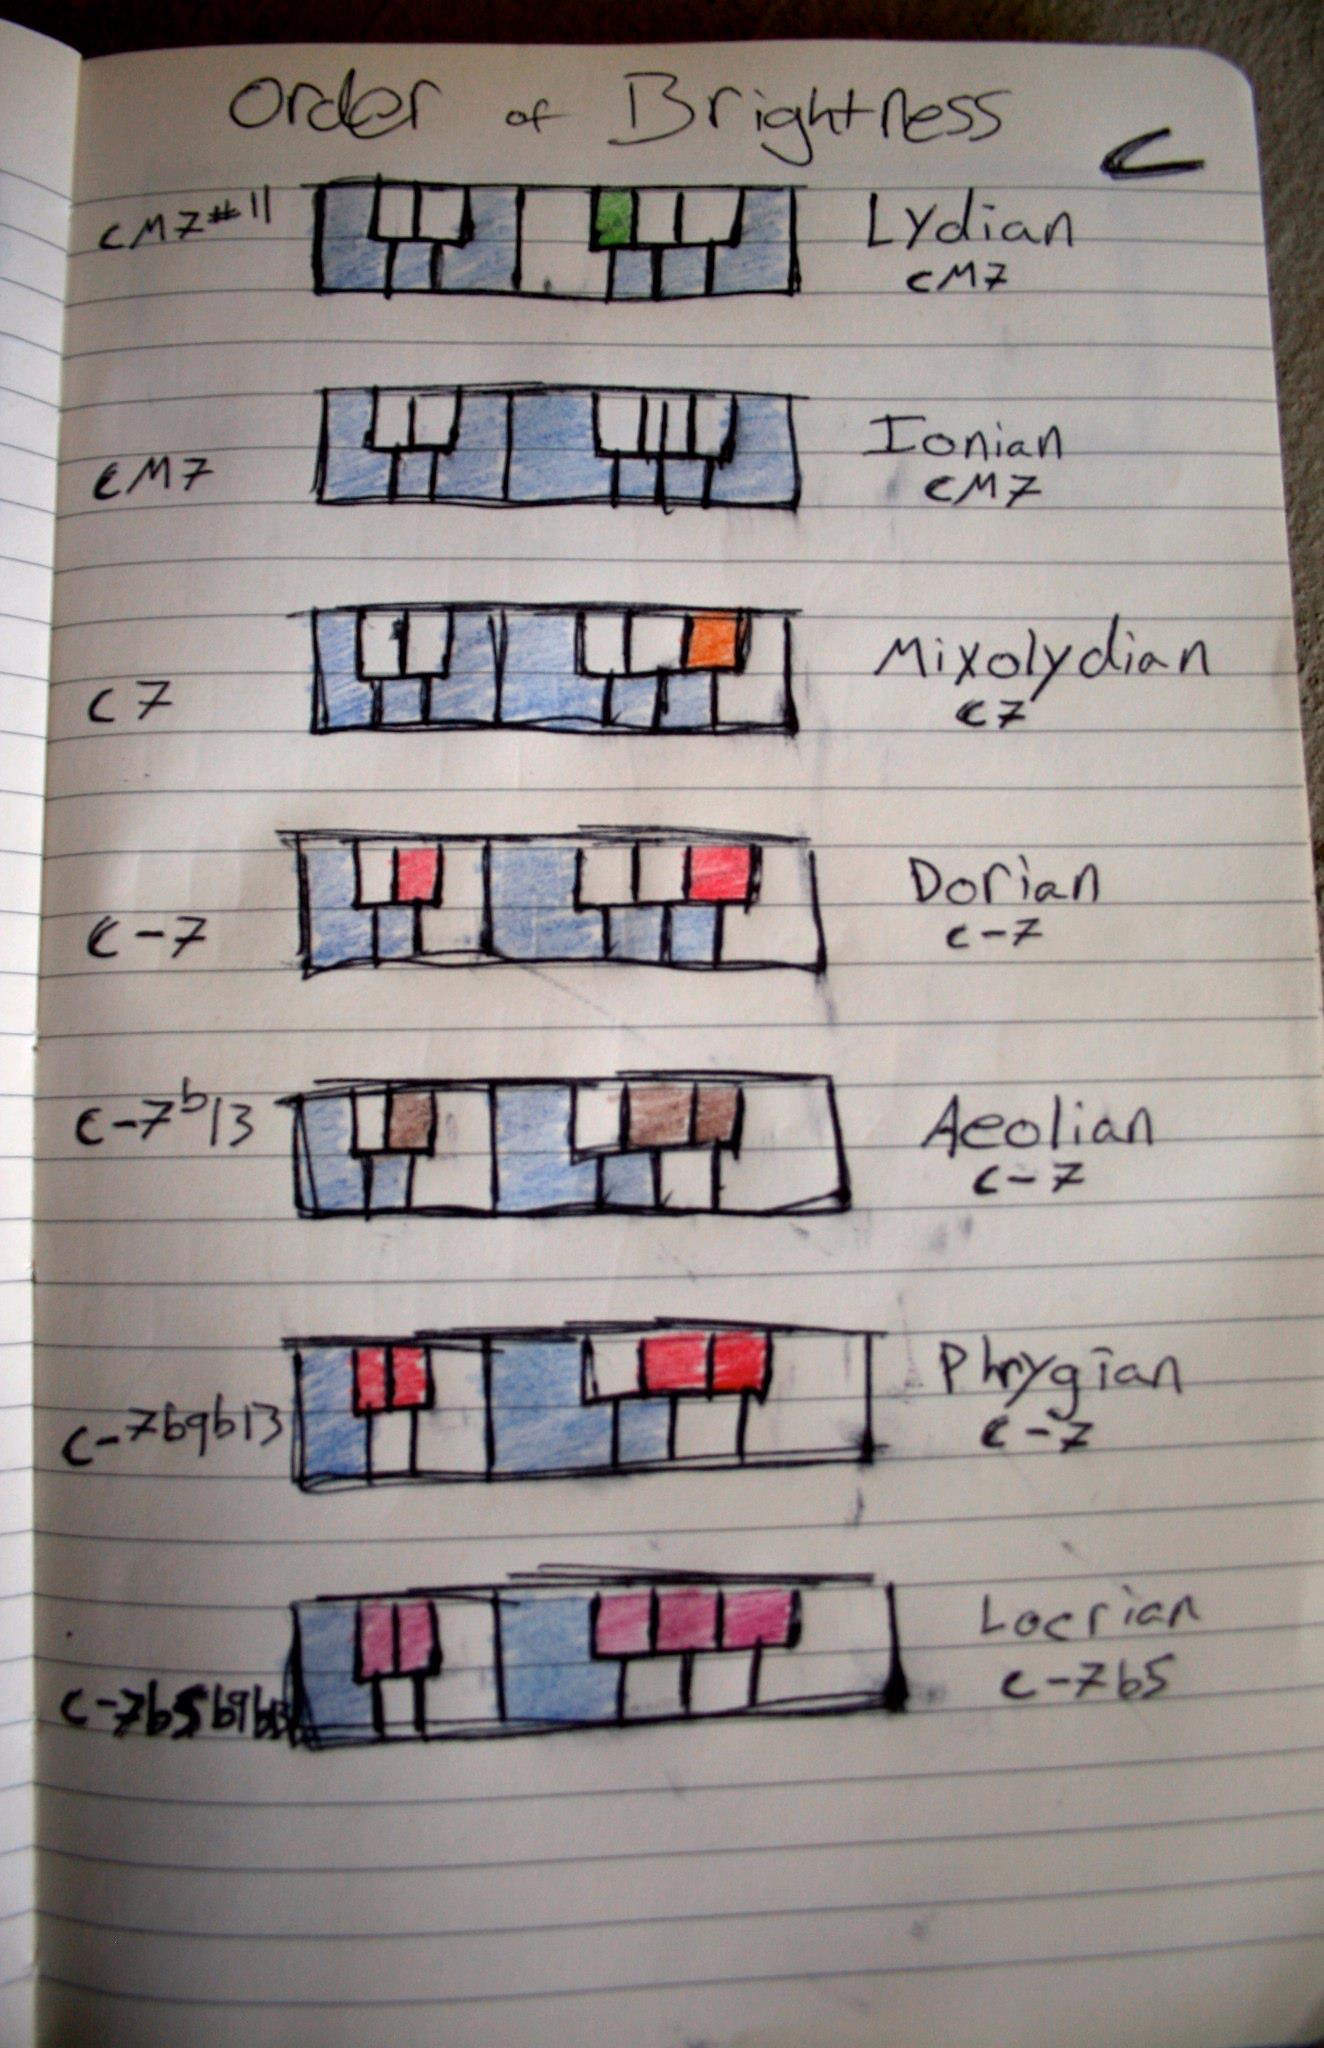 Order of Brightness
C
CM7#11
Lydian
CM7
CM7
Ionian
CM7
C7
Mixolydian
C7
C-7
Dorian
C-7
C-7b13
Aeolian
C-7
C-7b9b13
Phrygian
C-7
C-7b5b9b13
Locrian
C-7b5